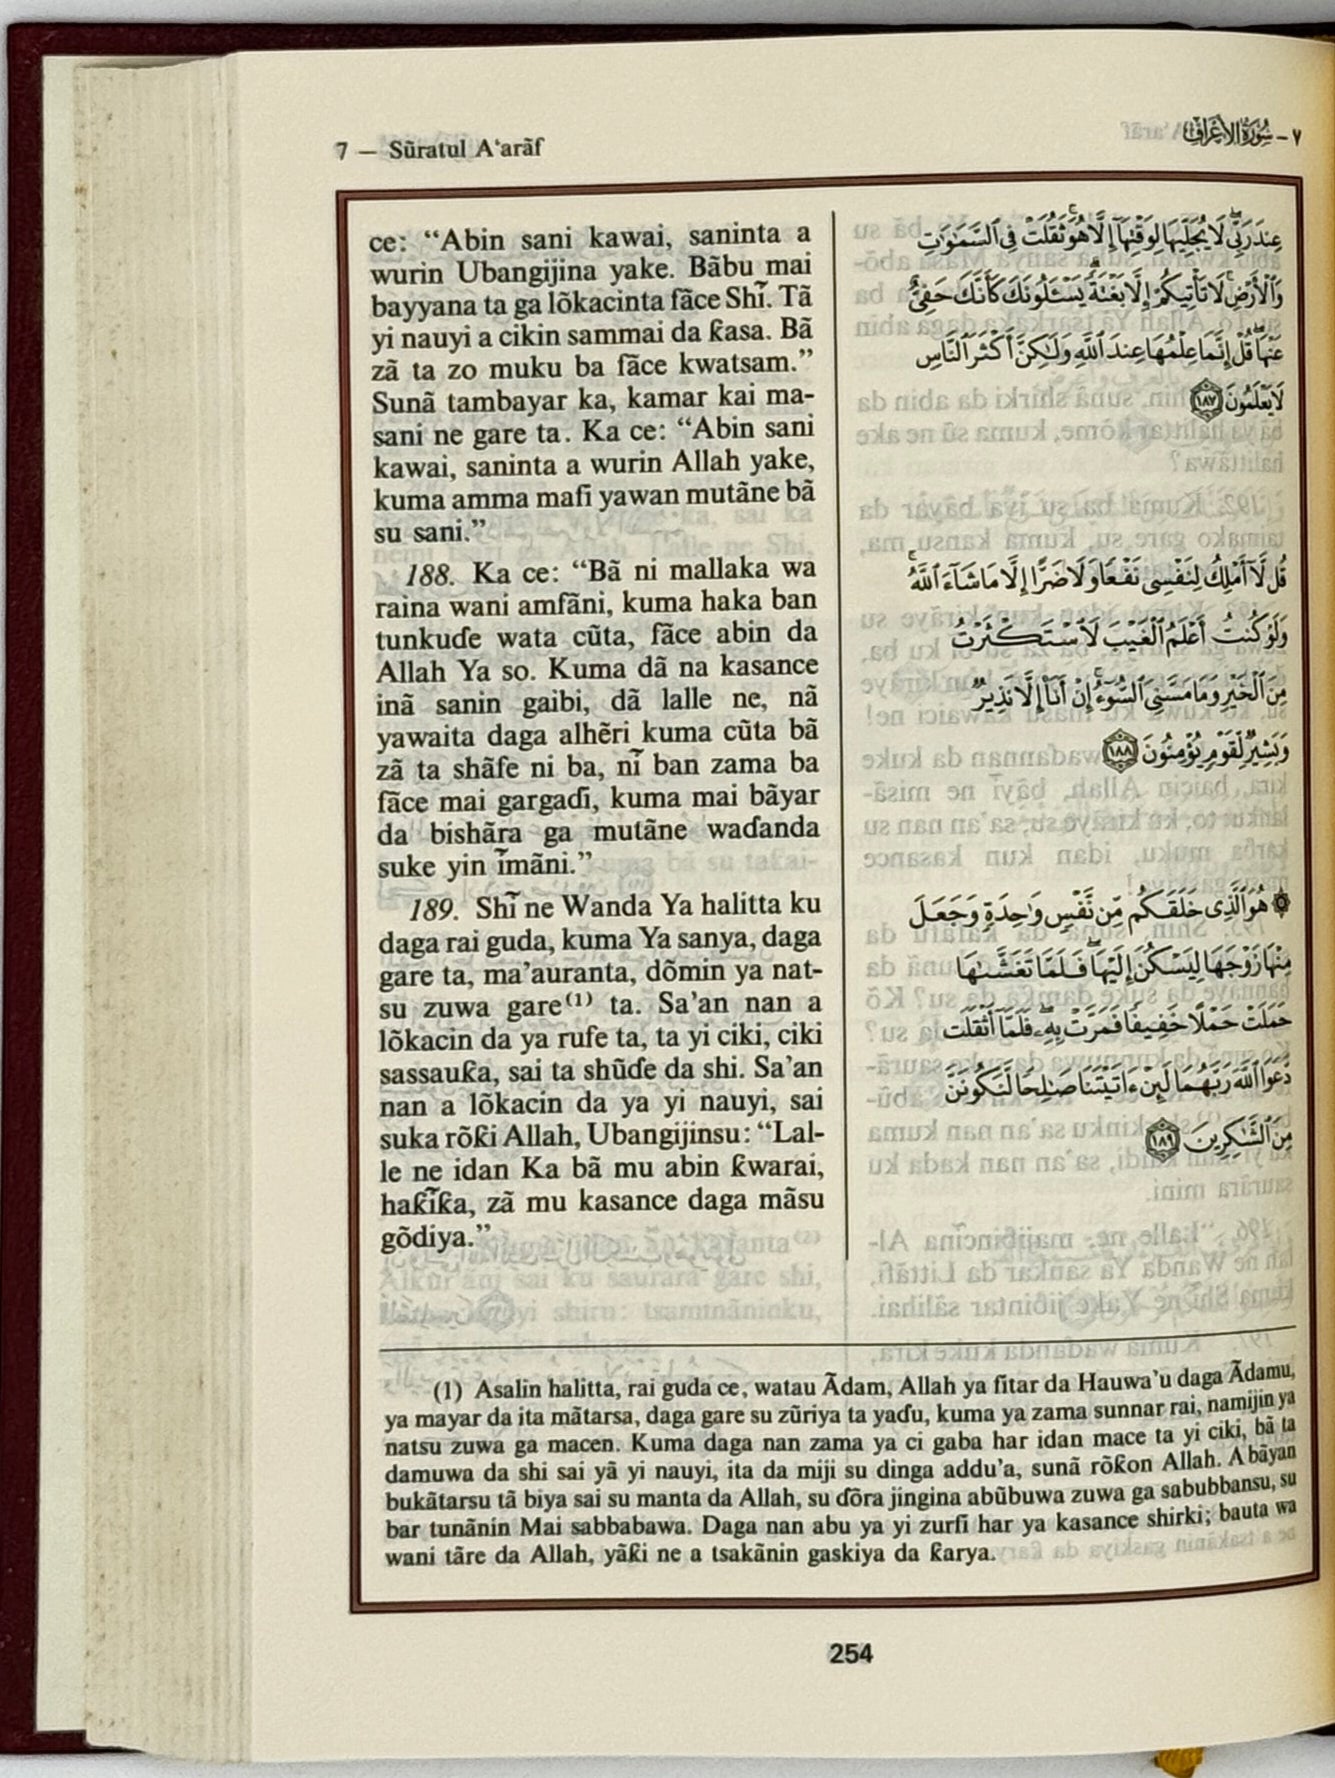 7 — Sũratul A‘arãf
٧ - سُورَةُ الأَعْرَافِ
ce: “Abin sani kawai, saninta a
wurin Ubangijina yake. Bãbu mai
bayyana ta ga lõkacinta fãce Shĩ. Tã
yi nauyi a cikin sammai da ƙasa. Bã
zã ta zo muku ba fãce kwatsam.”
Sunã tambayar ka, kamar kai ma-
sani ne gare ta. Ka ce: “Abin sani
kawai, saninta a wurin Allah yake,
kuma amma mafi yawan mutãne bã
su sani.”
188. Ka ce: “Bã ni mallaka wa
raina wani amfãni, kuma haka ban
tunkuɗe wata cũta, fãce abin da
Allah Ya so. Kuma dã na kasance
inã sanin gaibi, dã lalle ne, nã
yawaita daga alhẽri kuma cũta bã
zã ta shãfe ni ba, nĩ ban zama ba
fãce mai gargaɗi, kuma mai bãyar
da bishãra ga mutãne waɗanda
suke yin ĩmãni.”
189. Shĩ ne Wanda Ya halitta ku
daga rai guda, kuma Ya sanya, daga
gare ta, ma’auranta, dõmin ya nat-
su zuwa gare⁽¹⁾ ta. Sa’an nan a
lõkacin da ya rufe ta, ta yi ciki, ciki
sassauƙa, sai ta shũɗe da shi. Sa’an
nan a lõkacin da ya yi nauyi, sai
suka rõƙi Allah, Ubangijinsu: “Lal-
le ne idan Ka bã mu abin ƙwarai,
haƙĩƙa, zã mu kasance daga mãsu
gõdiya.”
عِندَ رَبِّي لَا يُجَلِّيهَا لِوَقْتِهَآ إِلَّا هُوَ ثَقُلَتْ فِي ٱلسَّمَٰوَٰتِ
وَٱلْأَرْضِ لَا تَأْتِيكُمْ إِلَّا بَغْتَةً يَسْـَٔلُونَكَ كَأَنَّكَ حَفِيٌّ
عَنْهَا قُلْ إِنَّمَا عِلْمُهَا عِندَ ٱللَّهِ وَلَٰكِنَّ أَكْثَرَ ٱلنَّاسِ
لَا يَعْلَمُونَ ١٨٧
قُل لَّآ أَمْلِكُ لِنَفْسِي نَفْعًا وَلَا ضَرًّا إِلَّا مَا شَآءَ ٱللَّهُ
وَلَوْ كُنتُ أَعْلَمُ ٱلْغَيْبَ لَٱسْتَكْثَرْتُ
مِنَ ٱلْخَيْرِ وَمَا مَسَّنِيَ ٱلسُّوٓءُ إِنْ أَنَا۠ إِلَّا نَذِيرٌ
وَبَشِيرٌ لِّقَوْمٍ يُؤْمِنُونَ ١٨٨
۞ هُوَ ٱلَّذِي خَلَقَكُم مِّن نَّفْسٍ وَٰحِدَةٍ وَجَعَلَ
مِنْهَا زَوْجَهَا لِيَسْكُنَ إِلَيْهَا فَلَمَّا تَغَشَّىٰهَا
حَمَلَتْ حَمْلًا خَفِيفًا فَمَرَّتْ بِهِۦ فَلَمَّآ أَثْقَلَت
دَّعَوَا ٱللَّهَ رَبَّهُمَا لَئِنْ ءَاتَيْتَنَا صَٰلِحًا لَّنَكُونَنَّ
مِنَ ٱلشَّٰكِرِينَ ١٨٩
(1) Asalin halitta, rai guda ce, watau Ãdam, Allah ya fitar da Hauwa’u daga Ãdamu,
ya mayar da ita mãtarsa, daga gare su zũriya ta yaɗu, kuma ya zama sunnar rai, namijin ya
natsu zuwa ga macen. Kuma daga nan zama ya ci gaba har idan mace ta yi ciki, bã ta
damuwa da shi sai yã yi nauyi, ita da miji su dinga addu’a, sunã rõƙon Allah. A bãyan
bukãtarsu tã biya sai su manta da Allah, su ɗõra jingina abũbuwa zuwa ga sabubbansu, su
bar tunãnin Mai sabbabawa. Daga nan abu ya yi zurfi har ya kasance shirki; bauta wa
wani tãre da Allah, yãƙi ne a tsakãnin gaskiya da ƙarya.
254